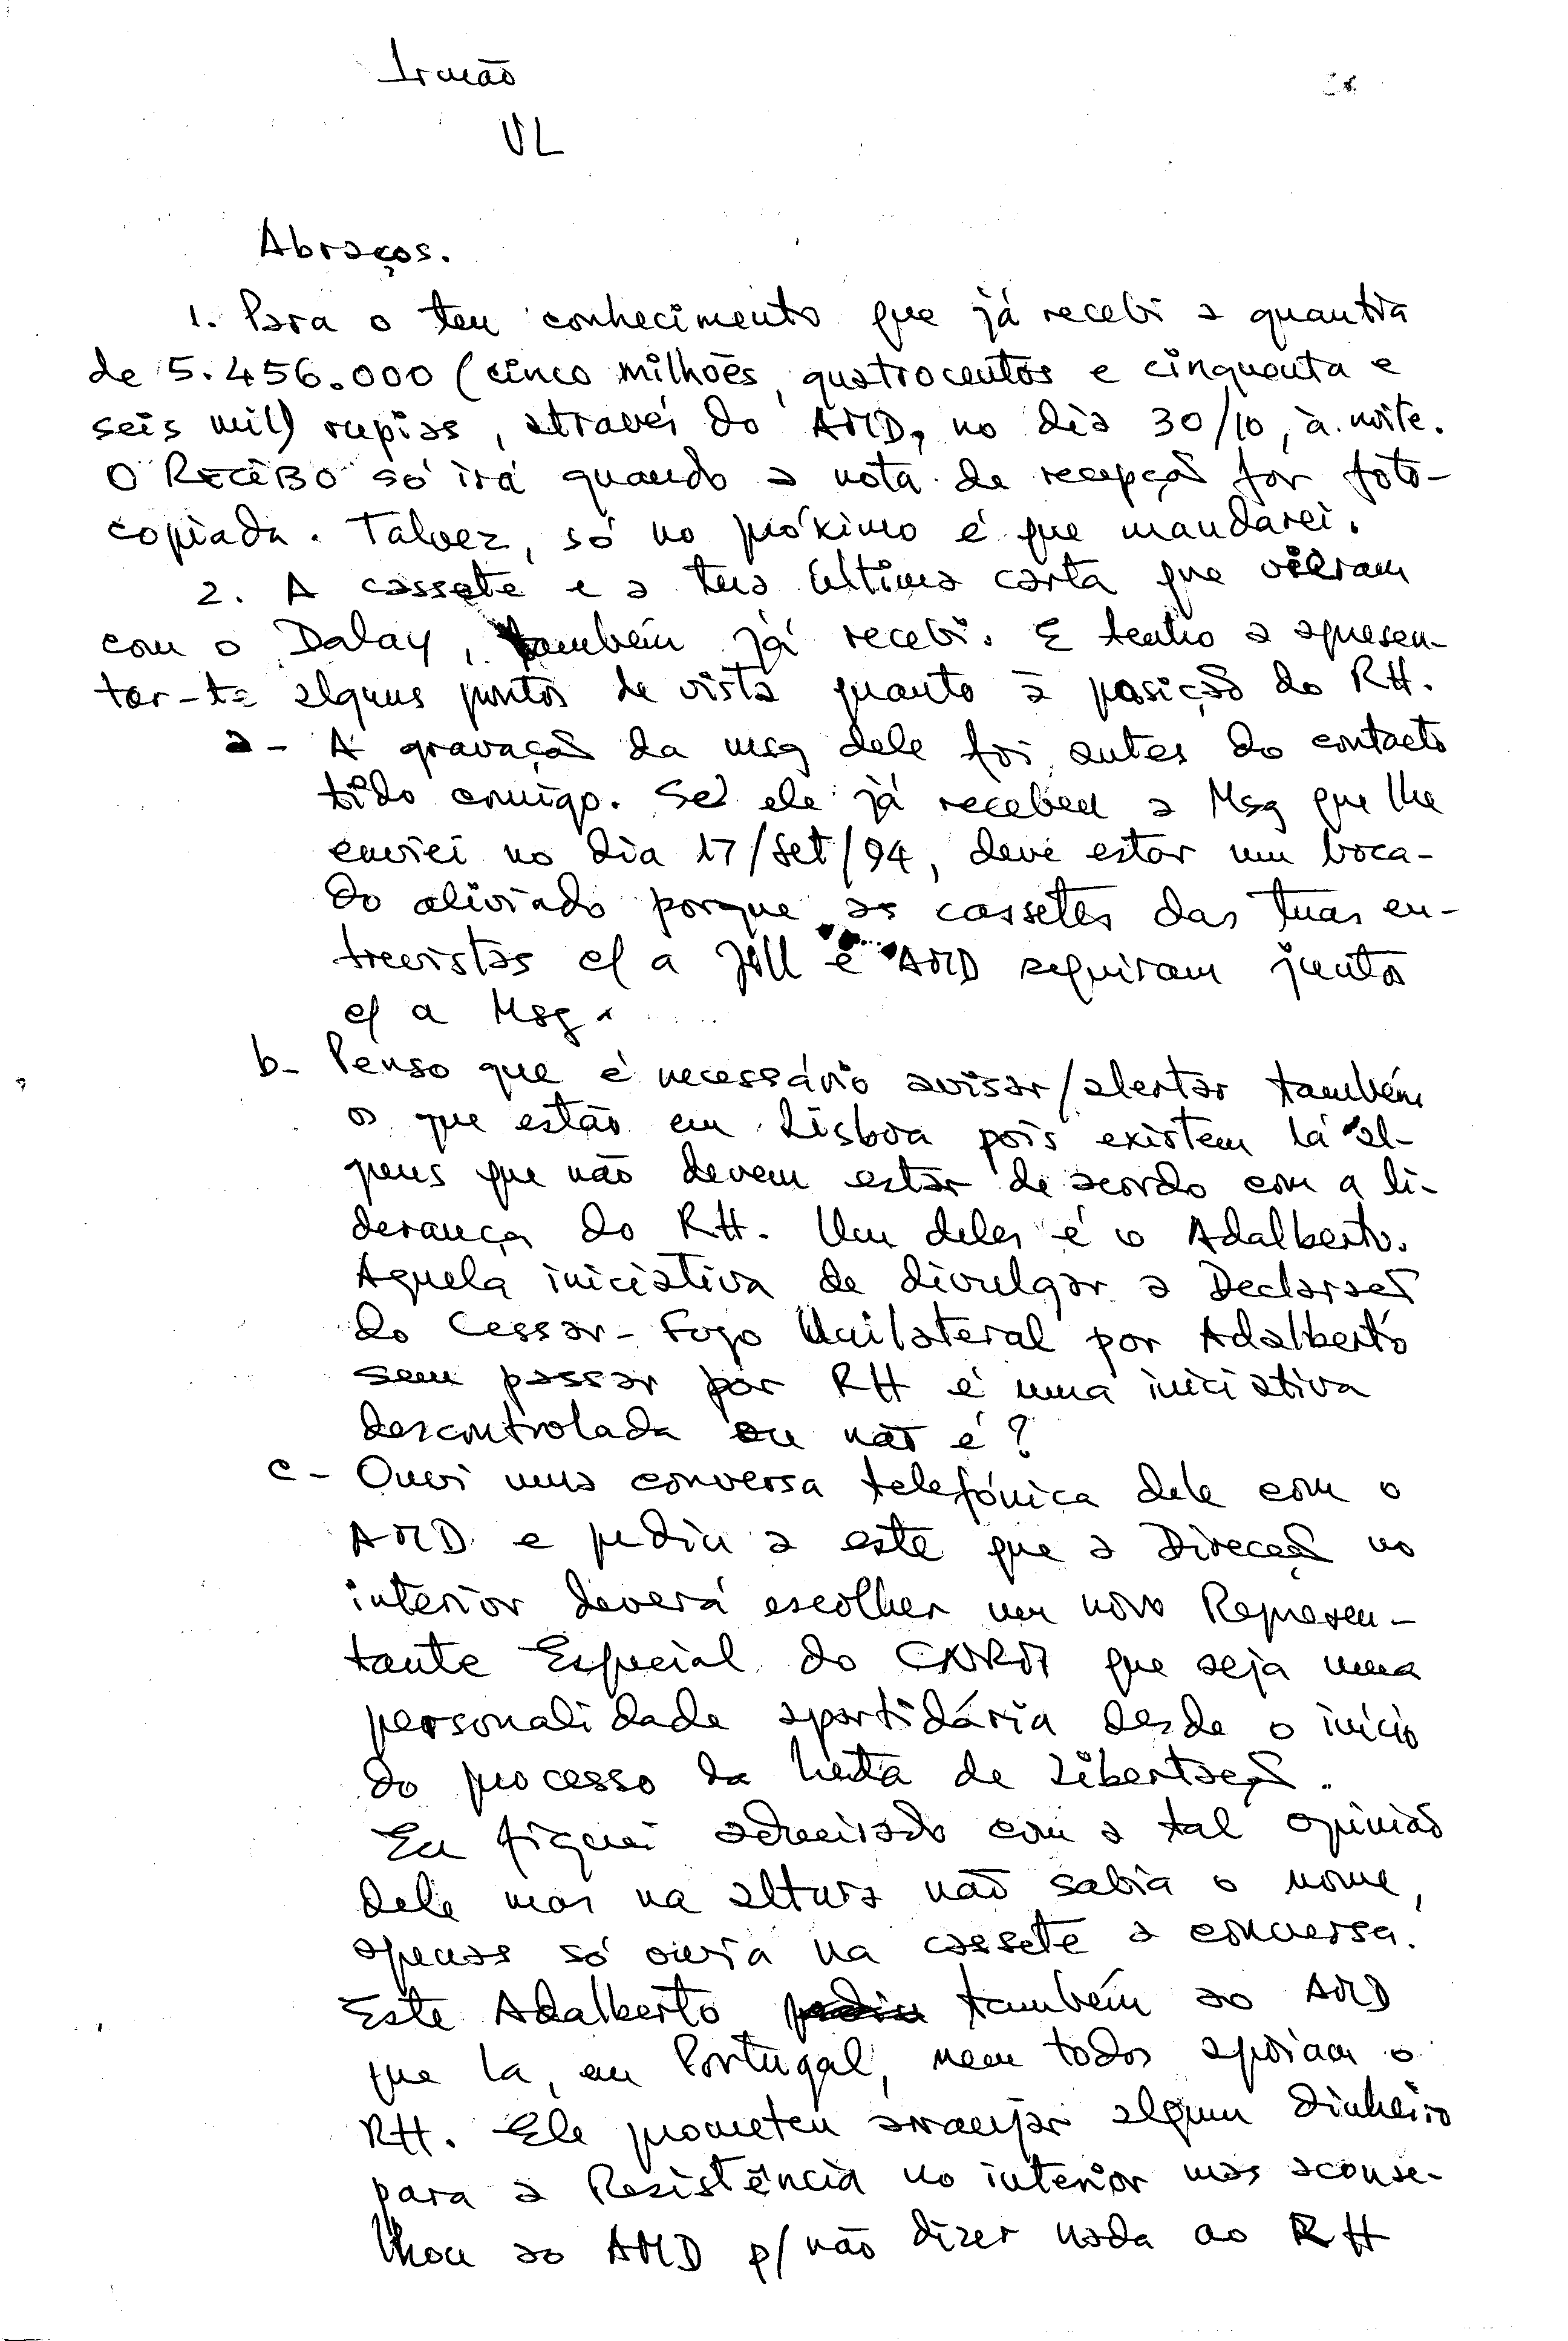 Irmão
VL
Abraços.
1. Para o teu conhecimento que já recebi a quantia
de 5.456.000 (cinco milhões, quatrocentos e cinquenta e
seis mil) rupias, através do AMD, no dia 30/10, à noite.
O RECIBO só irá quando a nota de recepção fôr foto-
copiada. Talvez, só no próximo é que mandarei.
2. A cassete e a tua última carta que vieram
com o Dalay, também já recebi. E tenho a apresen-
tar-te alguns pontos de vista quanto à posição do RH.
a- A gravação da msg dele foi antes do contacto
tido comigo. Se ele já recebeu a Msg que lhe
enviei no dia 17/Set/94, deve estar um boca-
do aliviado porque as cassetes das tuas en-
trevistas c/ a Jill e AMD seguiram juntos
c/ a Msg.
b- Penso que é necessário avisar/alertar também
os que estão em Lisboa pois existem lá al-
guns que não devem estar de acordo com a li-
derança do RH. Um deles é o Adalberto.
Aquela iniciativa de divulgar a Declaração
do Cessar-Fogo Unilateral por Adalberto
sem passar por RH é uma iniciativa
descontrolada ou não é?
c- Ouvi uma conversa telefónica dele com o
AMD e pediu a este que a Direcção no
interior deverá escolher um novo Represen-
tante Especial do CNRM que seja uma
personalidade apartidária desde o início
do processo da Luta de Libertação.
Eu fiquei admirado com a tal opinião
dele mas na altura não sabia o nome,
apenas só ouvia na cassete a conversa.
Este Adalberto também ao AMD
que lá, em Portugal, nem todos apoiam o
RH. Ele prometeu arranjar algum dinheiro
para a Resistência no interior mas aconse-
lhou ao AMD p/ não dizer nada ao RH